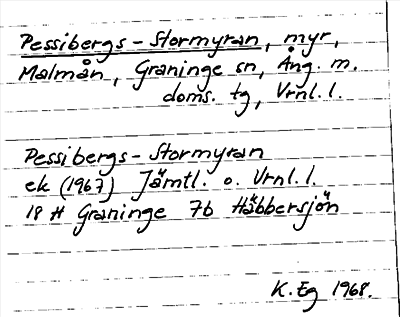 Pessibergs-Stormyran, myr,
Malmån, Graninge sn, Ång. m.
doms. tg, Vrnl. l.
Pessibergs-Stormyran
ek (1967) Jämtl. o. Vrnl. l.
18 H Graninge 7b Häbbersjön
K. Eg 1968.